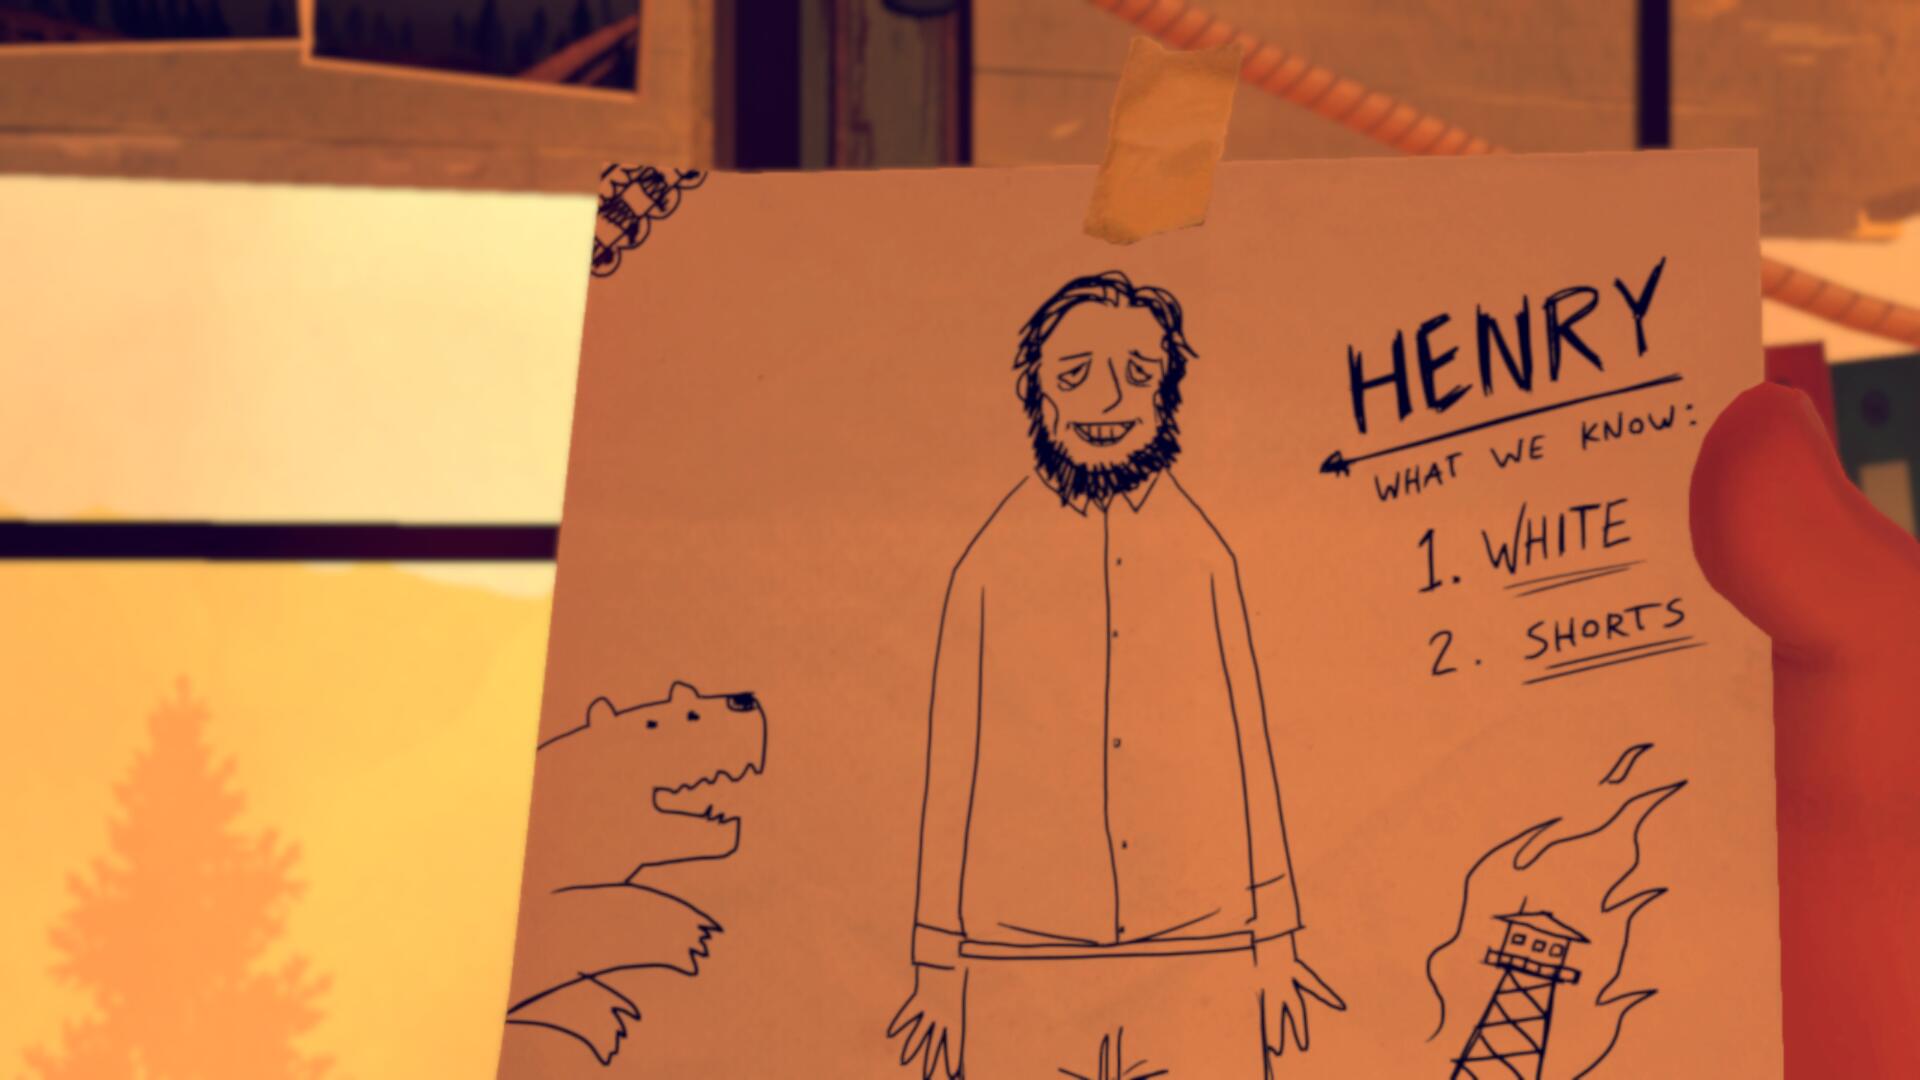 HENRY
WHAT WE KNOW:
1. WHITE
2. SHORTS